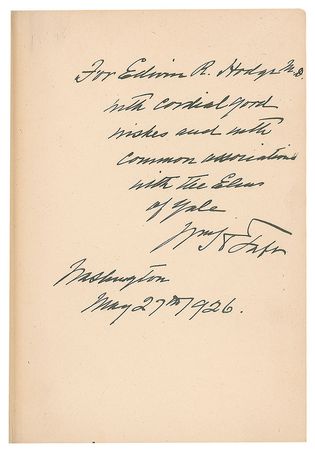 For Edwin R. Hodge M.D.
with cordial good
wishes and with
common associations
with the Elms
of Yale
Wm H Taft
Washington
May 27th 1926.